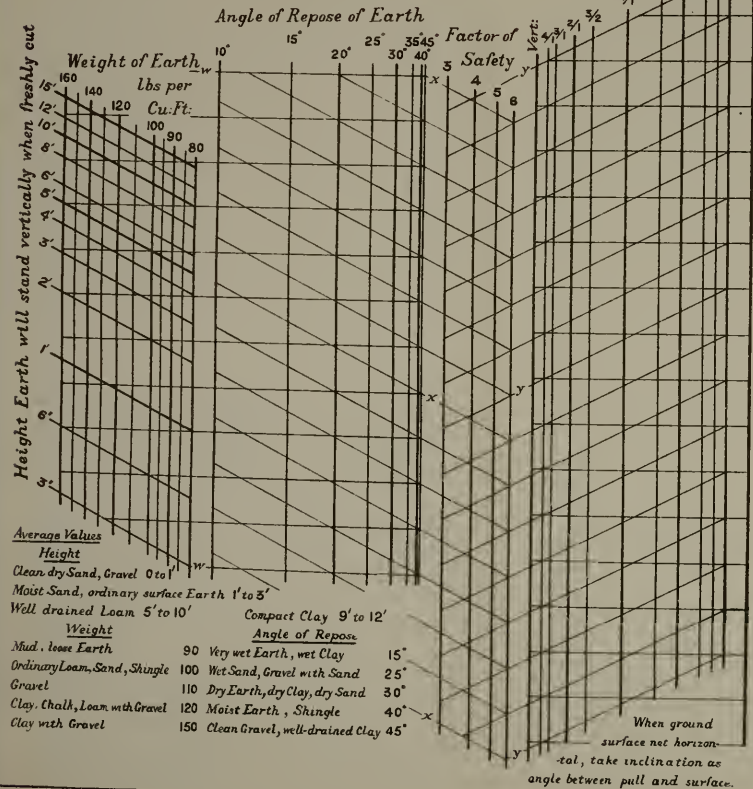 Angle of Repose of Earth
10° 15° 20° 25° 30° 35° 45°
40°
Factor of Safety
3 4 5 6
Vert:
4/1 3/1 2/1 3/2
Weight of Earth
lbs per
Cu: Ft:
160 140 120 100 90 80
Height Earth will stand vertically when freshly cut
15'
12'
10'
8'
6'
5'
4'
3'
2'
1'
6'
3'
w
w
x
x
x
y
y
y
Average Values
Height
Clean dry Sand, Gravel 0 to 1'
Moist Sand, ordinary surface Earth 1' to 3'
Well drained Loam 5' to 10' Compact Clay 9' to 12'
Weight
Mud, loose Earth 90
Ordinary Loam, Sand, Shingle 100
Gravel 110
Clay, Chalk, Loam with Gravel 120
Clay with Gravel 150
Angle of Repose
Very wet Earth, wet Clay 15°
Wet Sand, Gravel with Sand 25°
Dry Earth, dry Clay, dry Sand 30°
Moist Earth, Shingle 40°
Clean Gravel, well-drained Clay 45°
When ground
surface not horizon-
-tal, take inclination as
angle between pull and surface.